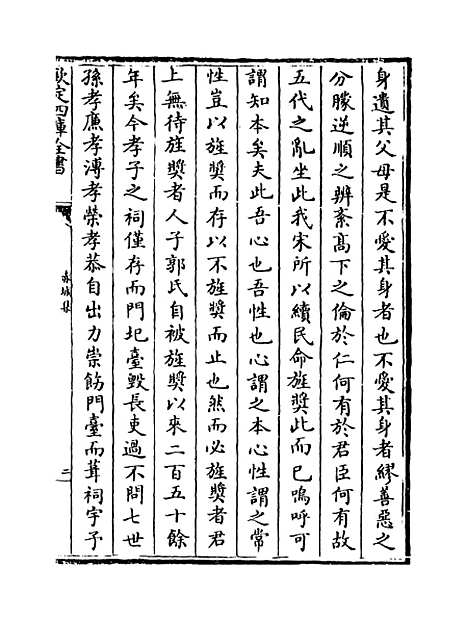 身遺其父母是不愛其身者也不愛其身者繆善惡之
分朦逆順之辨紊髙下之倫於仁何有於君臣何有故
五代之亂坐此我宋所以續民命旌奬此而已嗚呼可
謂知本矣夫此吾心也吾性也心謂之本心性謂之常
性豈以旌奬而存以不旌奬而止也然而必旌奬者君
上無待旌奬者人子郭氏自被旌奬以來二百五十餘
年矣今孝子之祠僅存而門圮臺毀長吏過不問七世
孫孝廉孝溥孝榮孝恭自出力崇飭門臺而葺祠宇予
欽定四庫全書
赤城集
二